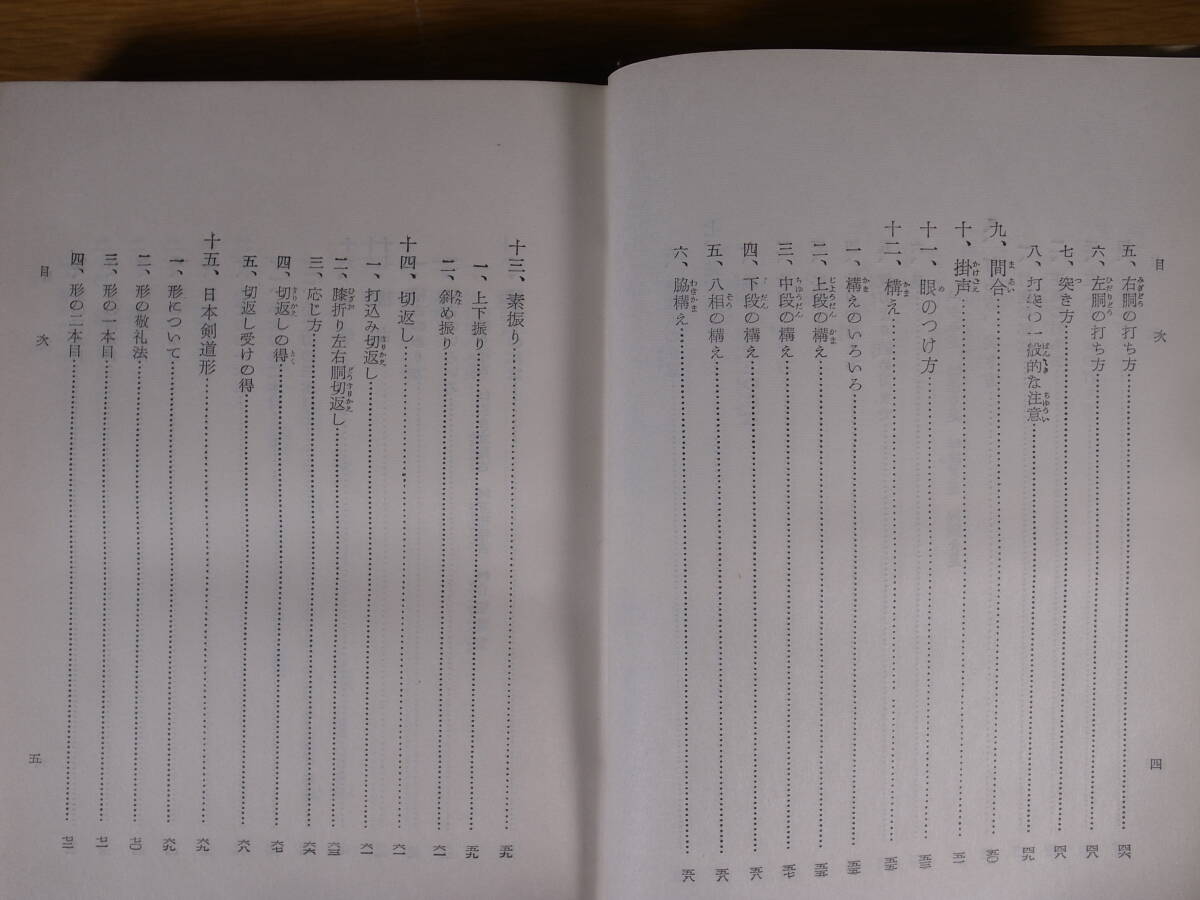 目次
五、右胴の打ち方……四六
六、左胴の打ち方……四八
七、突き方……四八
八、打突の一般的な注意……四九
九、間合……五〇
十、掛声……五一
十一、眼のつけ方……五三
十二、構え……五五
一、構えのいろいろ……五五
二、上段の構え……五五
三、中段の構え……五七
四、下段の構え……五八
五、八相の構え……五八
六、脇構え……五八
四
目次
十三、素振り……五九
一、上下振り……五九
二、斜め振り……六一
十四、切返し……六一
一、打込み切返し……六一
二、膝折り左右胴切返し……六三
三、応じ方……六六
四、切返しの得……六七
五、切返し受けの得……六八
十五、日本剣道形……六九
一、形について……六九
二、形の敬礼法……七〇
三、形の一本目……七一
四、形の二本目……七二
五